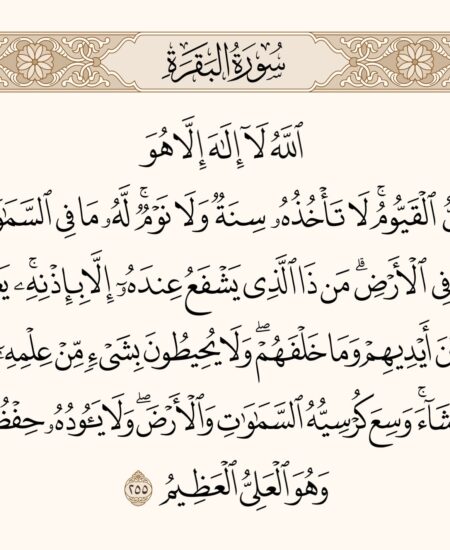 سُورَةُ الْبَقَرَةِ
ٱللَّهُ لَآ إِلَٰهَ إِلَّا هُوَ
ٱلْقَيُّومُ ۚ لَا تَأْخُذُهُۥ سِنَةٌ وَلَا نَوْمٌ ۚ لَّهُۥ مَا فِى
ٱلْأَرْضِ ۗ مَن ذَا ٱلَّذِى يَشْفَعُ عِندَهُۥٓ إِلَّا بِإِذْنِهِۦ ۚ
أَيْدِيهِمْ وَمَا خَلْفَهُمْ ۖ وَلَا يُحِيطُونَ بِشَىْءٍ مِّنْ عِلْمِهِۦٓ
وَسِعَ كُرْسِيُّهُ ٱلسَّمَٰوَٰتِ وَٱلْأَرْضَ ۖ وَلَا يَـُٔودُهُۥ
وَهُوَ ٱلْعَلِىُّ ٱلْعَظِيمُ ٢٥٥